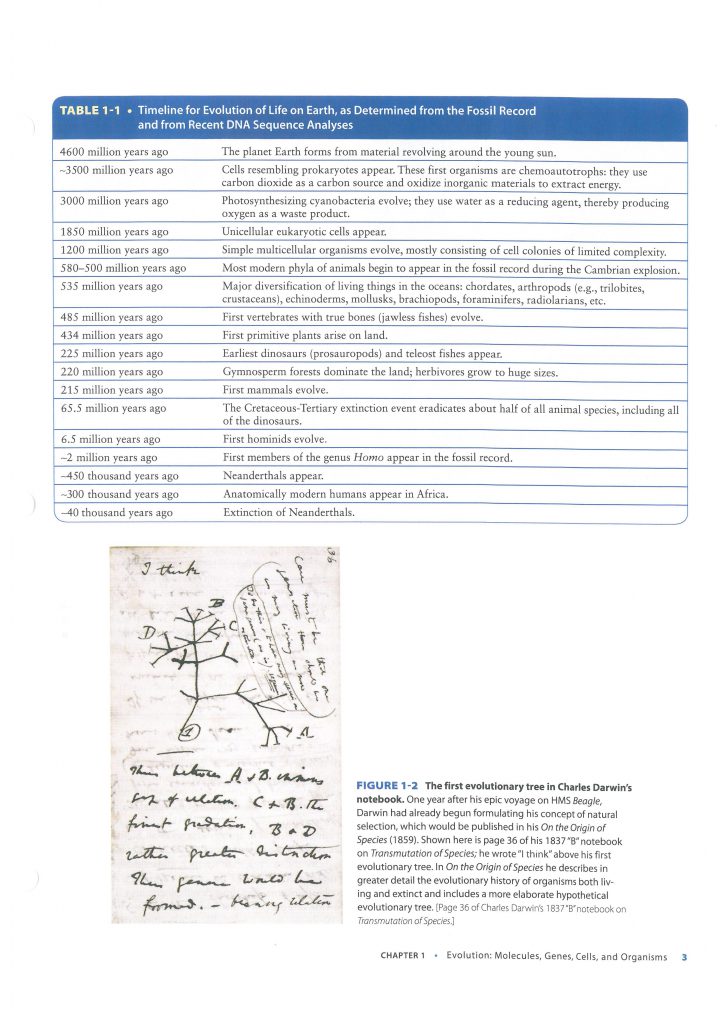 TABLE 1-1 • Timeline for Evolution of Life on Earth, as Determined from the Fossil Record
and from Recent DNA Sequence Analyses
4600 million years ago The planet Earth forms from material revolving around the young sun.
~3500 million years ago Cells resembling prokaryotes appear. These first organisms are chemoautotrophs: they use
carbon dioxide as a carbon source and oxidize inorganic materials to extract energy.
3000 million years ago Photosynthesizing cyanobacteria evolve; they use water as a reducing agent, thereby producing
oxygen as a waste product.
1850 million years ago Unicellular eukaryotic cells appear.
1200 million years ago Simple multicellular organisms evolve, mostly consisting of cell colonies of limited complexity.
580–500 million years ago Most modern phyla of animals begin to appear in the fossil record during the Cambrian explosion.
535 million years ago Major diversification of living things in the oceans: chordates, arthropods (e.g., trilobites,
crustaceans), echinoderms, mollusks, brachiopods, foraminifers, radiolarians, etc.
485 million years ago First vertebrates with true bones (jawless fishes) evolve.
434 million years ago First primitive plants arise on land.
225 million years ago Earliest dinosaurs (prosauropods) and teleost fishes appear.
220 million years ago Gymnosperm forests dominate the land; herbivores grow to huge sizes.
215 million years ago First mammals evolve.
65.5 million years ago The Cretaceous-Tertiary extinction event eradicates about half of all animal species, including all
of the dinosaurs.
6.5 million years ago First hominids evolve.
~2 million years ago First members of the genus Homo appear in the fossil record.
~450 thousand years ago Neanderthals appear.
~300 thousand years ago Anatomically modern humans appear in Africa.
~40 thousand years ago Extinction of Neanderthals.
36
I think
B
D
C
A
1
Thus between A & B. immens
gap of relation. C & B. the
finest gradation, B & D
rather greater distinction
Thus genera would be
formed. — bearing relation
FIGURE 1-2 The first evolutionary tree in Charles Darwin's
notebook. One year after his epic voyage on HMS Beagle,
Darwin had already begun formulating his concept of natural
selection, which would be published in his On the Origin of
Species (1859). Shown here is page 36 of his 1837 "B" notebook
on Transmutation of Species; he wrote "I think" above his first
evolutionary tree. In On the Origin of Species he describes in
greater detail the evolutionary history of organisms both liv-
ing and extinct and includes a more elaborate hypothetical
evolutionary tree. [Page 36 of Charles Darwin's 1837 "B" notebook on
Transmutation of Species.]
CHAPTER 1 • Evolution: Molecules, Genes, Cells, and Organisms 3